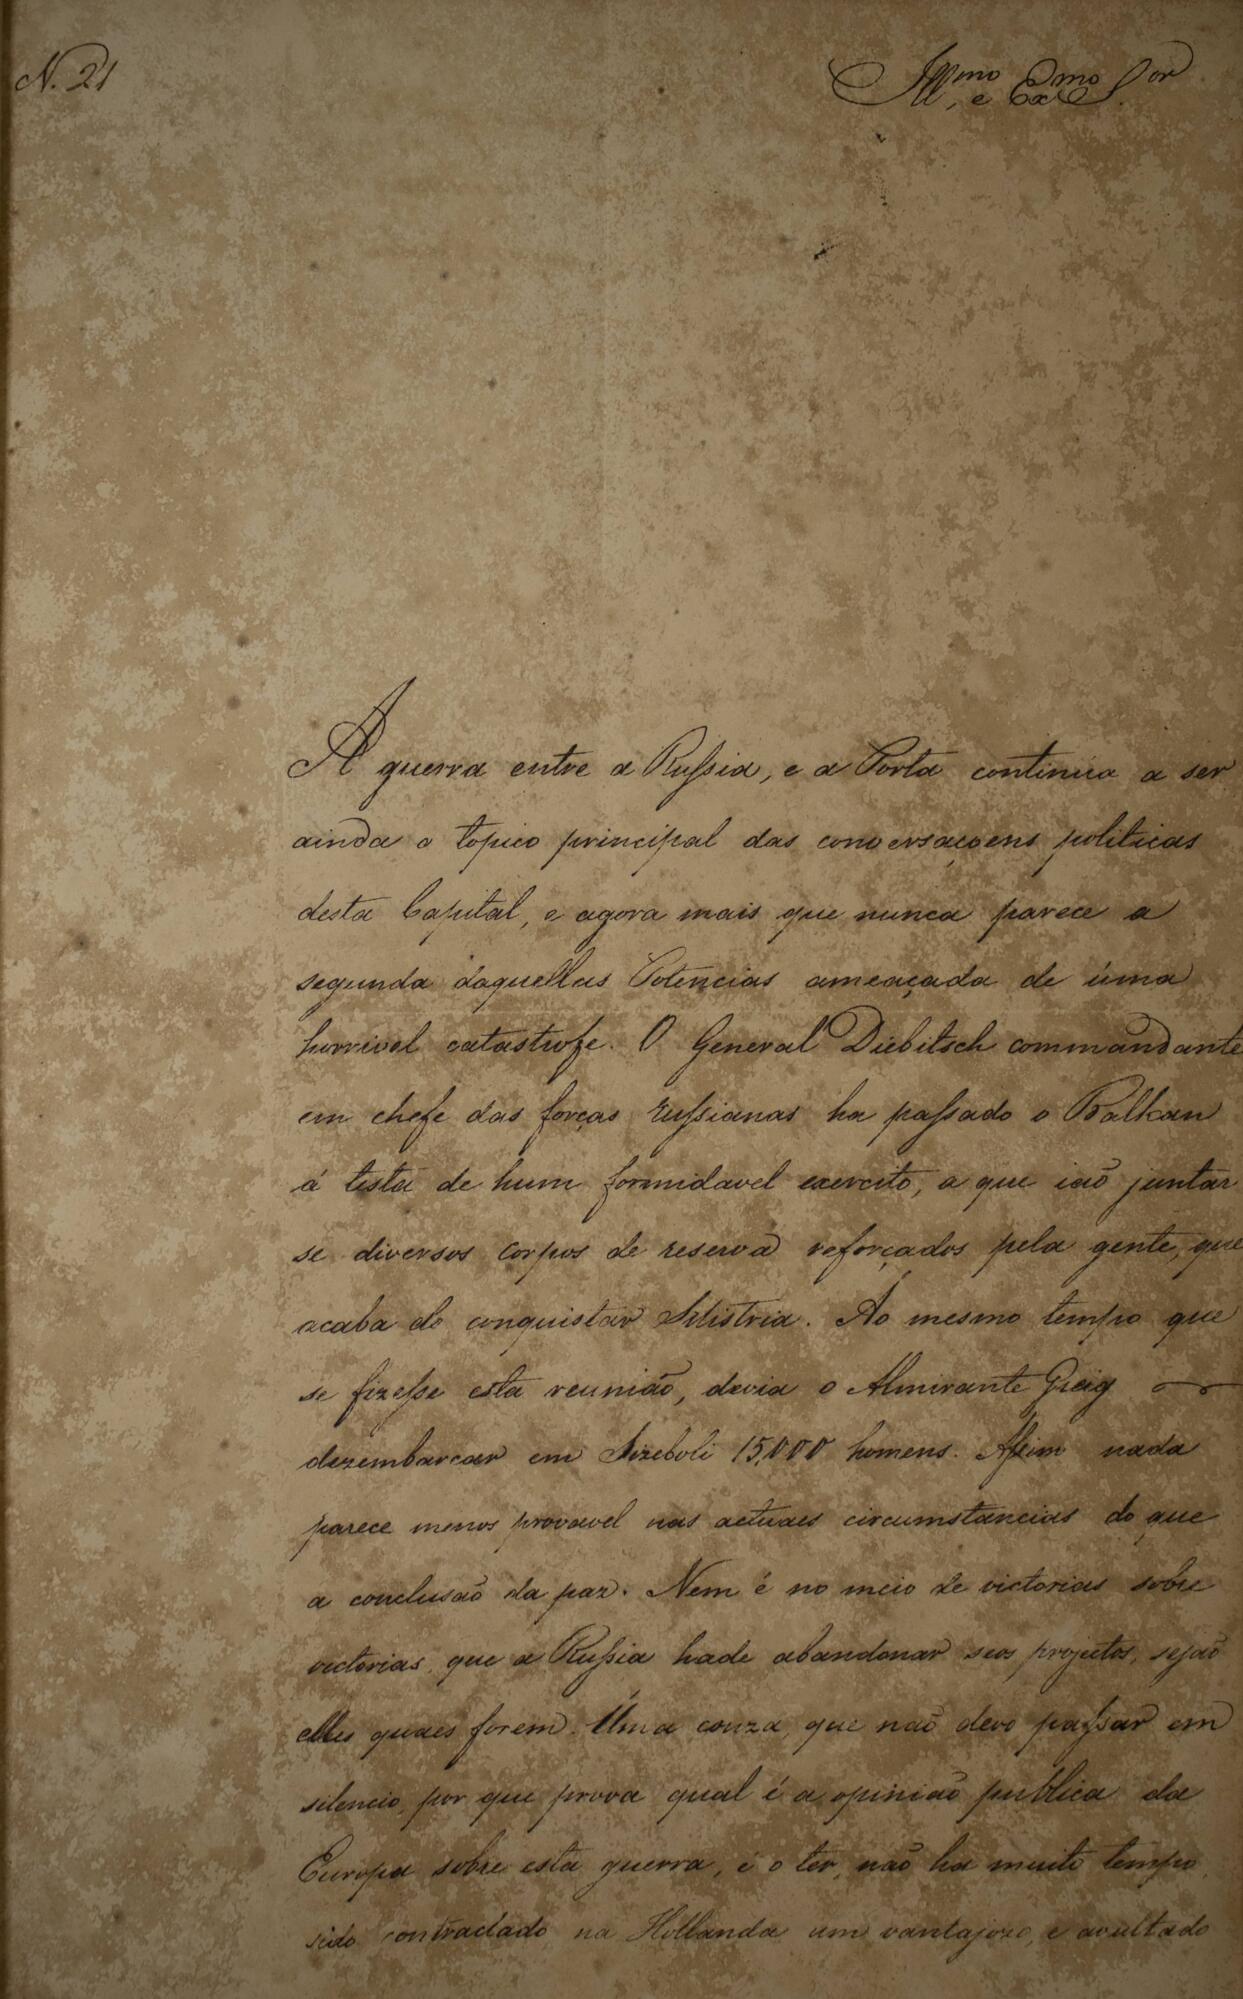 N. 21
Ill.mo e Ex.mo S.or
A guerra entre a Russia, e a Porta continúa a ser
ainda o topico principal das conversaçoens politicas
desta Capital, e agora mais que nunca parece a
segunda daquellas Potencias ameaçada de úma
horrivel catastrofe. O General Diebitsch commandante
em chefe das forças russianas ha passado o Balkan
á testa de hum formidavel exercito, a que iaõ juntar
se diversos corpos de reserva reforçados pela gente, que
acaba de conquistar Silistria. Ao mesmo tempo que
se fizesse esta reuniaõ, devia o Almirante Greig
dezembarcar em Sizeboli 15,000 homens. Assim nada
parece menos provavel nas actuaes circumstancias do que
a conclusaõ da paz. Nem é no meio de victorias sobre
victorias, que a Russia hade abandonar seos projetos, sejaõ
elles quaes forem. Uma couza, que naõ devo passar em
silencio, por que prova qual é a opiniaõ publica da
Europa sobre esta guerra, é o ter, naõ ha muito tempo,
sido contractado na Hollanda um vantajozo, e avultado